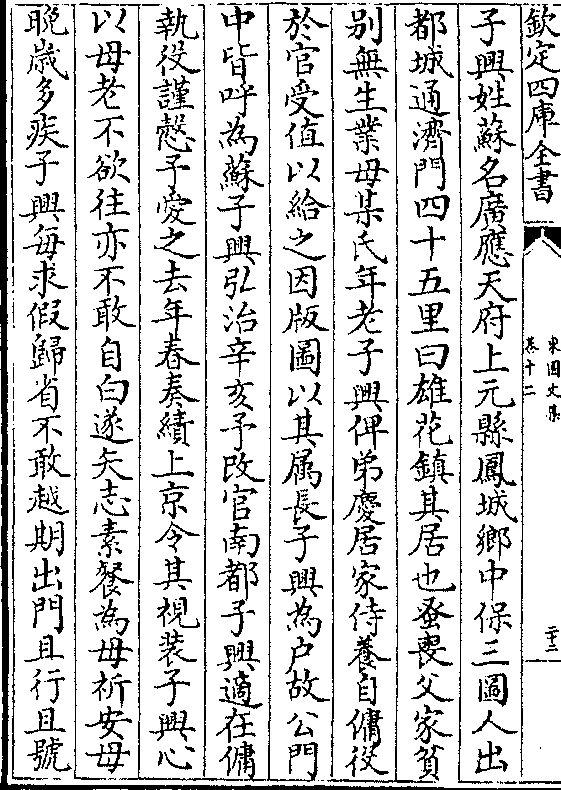 欽定四庫全書
東園文集
卷十二
二十二
子興姓蘇名廣應天府上元縣鳳城鄉中保三圖人出
都城通濟門四十五里曰雄花鎮其居也蚤喪父家貧
别無生業母某氏年老子興俾弟慶居家侍養自傭役
於官受值以給之因版圖以其属長子興為户故公門
中皆呼為蘇子興弘治辛亥予改官南都子興適在傭
執役謹慤予愛之去年春奏績上京令其視装子興心
以母老不欲往亦不敢自白遂矢志素餐為母祈安母
晚歳多疾子興每求假歸省不敢越期出門且行且號